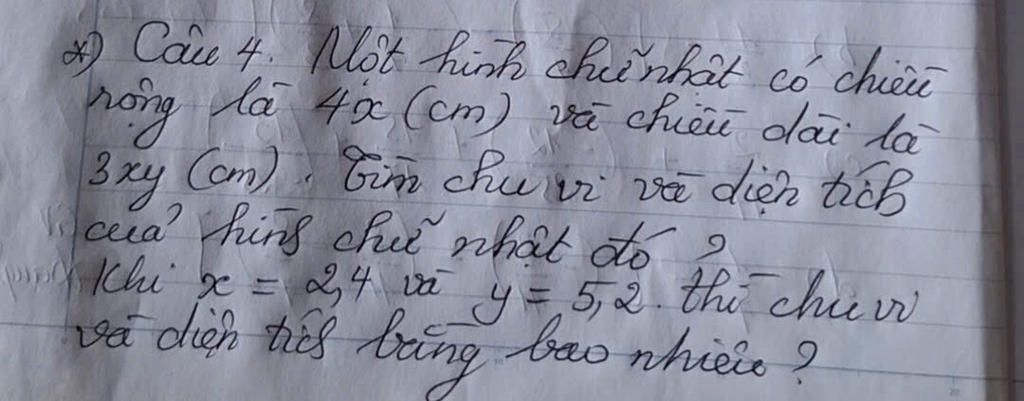 *) Câu 4. Một hình chữ nhật có chiều
rộng là 4x (cm) và chiều dài là
3xy (cm). Tìm chu vi và diện tích
của hình chữ nhật đó ?
Khi x = 2,4 và y = 5,2. thì chu vi
và diện tích bằng bao nhiêu ?